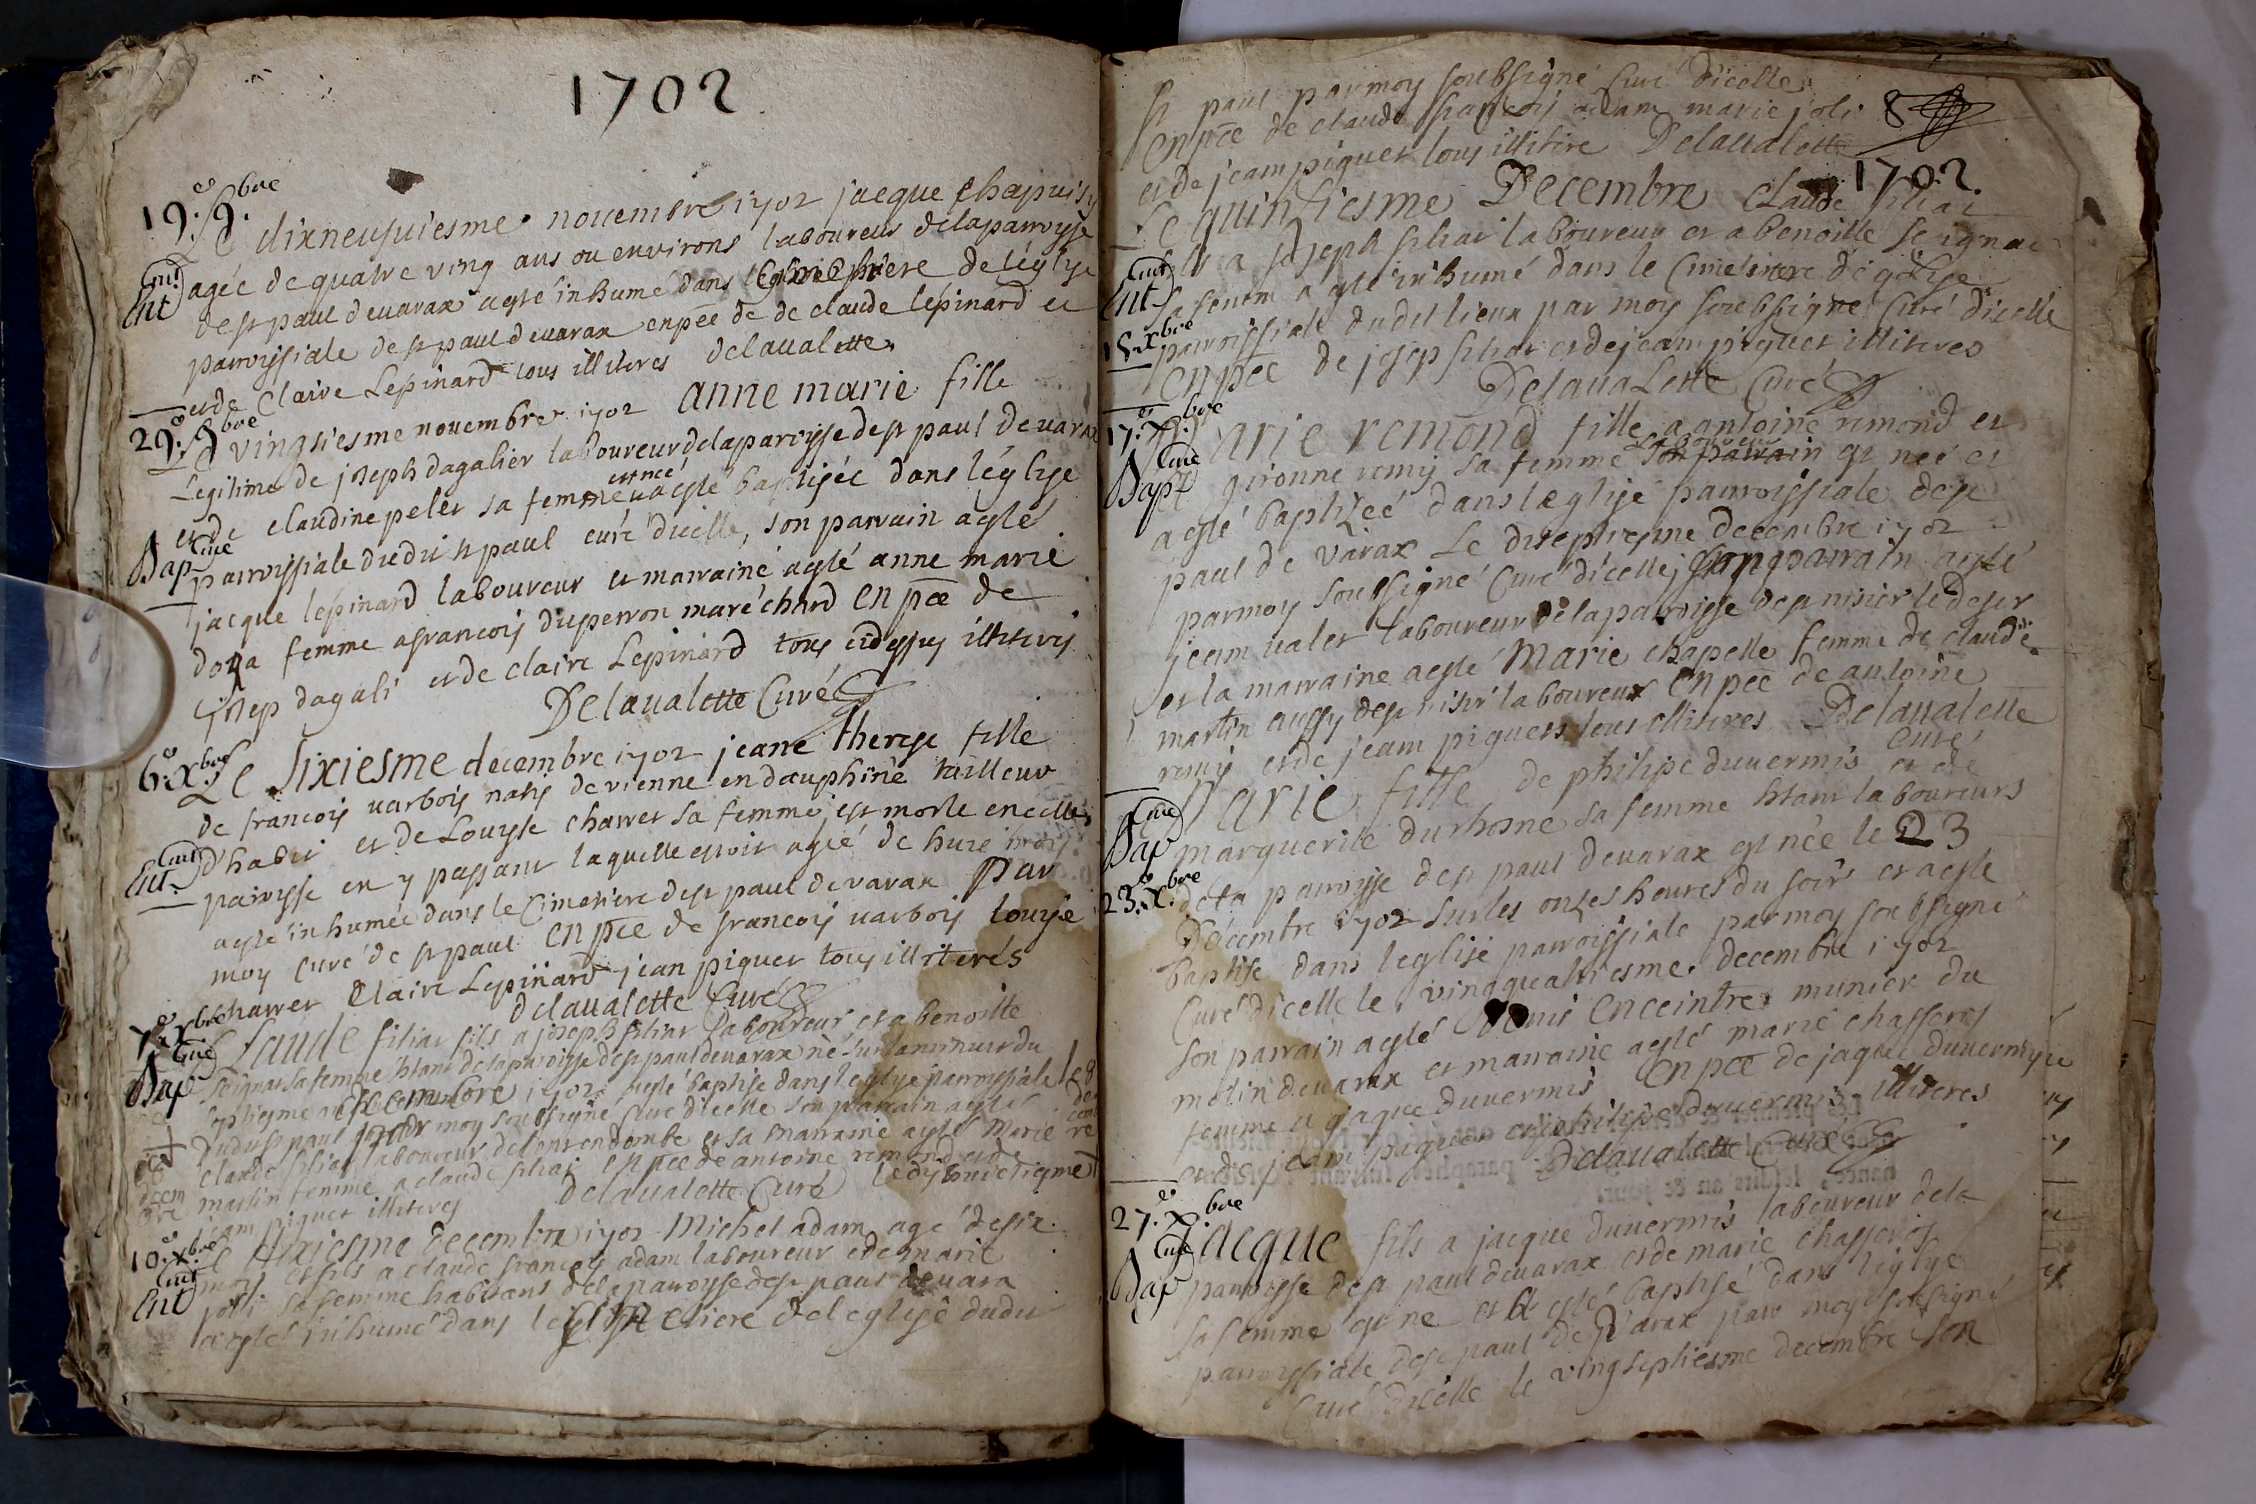 1702
19.e 9.bre
Le dixneufuiesme novembre 1702 jacque Chapuisy
Ent
agée de quatre ving ans ou environs laboureur delaparroysse
de st paul devarax aesté inhumé dans le Cimethiere de léglise
parroyssiale de st paul devarax enpēe de de claude lépinard et
et de Claire Lepinard tous illiteres delavalette
29.e 9.bre
Le vingtiesme novembre 1702 anne marie fille
Legitime de joseph dagalier laboureur delaparoysse dest paul devarax
et de claudine peler sa femme est née et aesté baptisée dans léglise
Bap
parroyssiale dudit st paul curé dicelle, son parrain aesté
jacque lépinard laboureur et marrainé aesté anne marie
femme afrancois duperron maréchard en pēe de
josep dagali et de claire Lepinard tous cidessus illiteres
Delavalette Curé
6.e xbre
Le sixiesme decembre 1702 jeane therese fille
de francois varbois natif de vienne en dauphiné tailleur
d'habit et de Louyse charret sa femme est morte en cette
Ent.
parroysse en y passant laquelle estoit agée de huit mois
aesté inhumée dans le Cimetiere dest paul de varax par
moy curé de st paul en pēe de francois varbois louyse
charret Claire Lepinard jean piquet tous illiterés
delavalette Curé
7.e xbre
Claude filiat fils a joseph filiat laboureur et a benoitte
Bap
seignat sa femme htant delaparoisse dest paul devarax né sur la minuit du
septiesme decembre 1702 aesté baptisé dans leglise parroyssiale le 8
dudit st paul par moy soubsigné Curé dicelle son parrain aesté
claude filiat laboureur et sa marraine aesté Marie
martin femme a claude filiat en pēe de antoine remond et de
jean piquet illiteres Delavalette Curé
10.e xbre
Le dixiesme decembre 1702 Michel adam agé de six
Ent
mois et fils a claude francois adam laboureur et de marie
joli sa femme habitans delaparroysse dest paul devarax
aesté inhumé dans le Cimetiere de leglise dudit
st paul par moy soubsigné Curé dicelle
en pēe de claude francois adam marie joli
et de jean piquet tous illitere Delavalette
8
1702.
Le quinsiesme Decembre Claude filiat
fils a joseph filiat laboureur et a benoitte seignat
Ent
sa femm a esté inhumé dans le Cimetiere de léglise
15. xbre
parroissiale dudit lieux par moy soubsigné Curé dicelle
en pēe de josep filiat et de jean piquet illiteres
Delavalette Curé
17.e x.bre
Marie remond fille a antoine rimond et
Bapt
gironne remy sa femme laboureur est née et
aesté baptisée dans leglise parroissiale dest
paul de varax Le diseptiesme decembre 1702
parmoy soubsigné Curé dicelle son parrain aesté
jean valet laboureur delaparoisse dest nisier ledesert
et la marraine aesté Marie chapelle femme de claude
martin aussy dest nisir laboureur en pēe de antoine
remy et de jean piquet tous illiteres Delavalette
Curé
Marie fille de philipe duvermis et de
Bap
marguerite durhosne sa femme htant laboureurs
23.e x.bre
dela parroysse dest paul devarax est née le 23
Décembre 1702 sur les onses heures du soirs et aesté
baptise dans leglise parroissiale parmoy soubsigné
Curé dicelle le vingquatriesme decembre 1702
son parrain aesté denis enceintre munier du
molin devarax et marraine aesté marie chafferes
femme a jaque duvermis en pēe de jaque duvermis
et de jean piquet et philipe duvermis illiteres
Delavalette Curé
27.e x.bre
Jacque fils a jacque duvermis laboureur dela
Bap
parroysse dest paul devarax et de marie chafferes
sa femme est né et aesté baptisé dans léglise
parroyssiale dest paul de varax par moy soubsigné
Curé dicelle le vingseptiesme decembre son